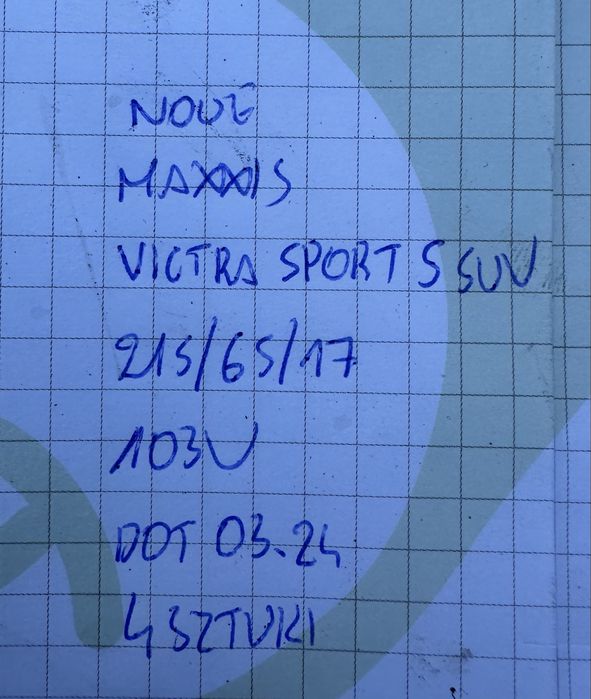 NOWE
MAXXIS
VICTRA SPORT 5 SUV
215/65/17
103V
DOT 03.24
4 SZTUKI